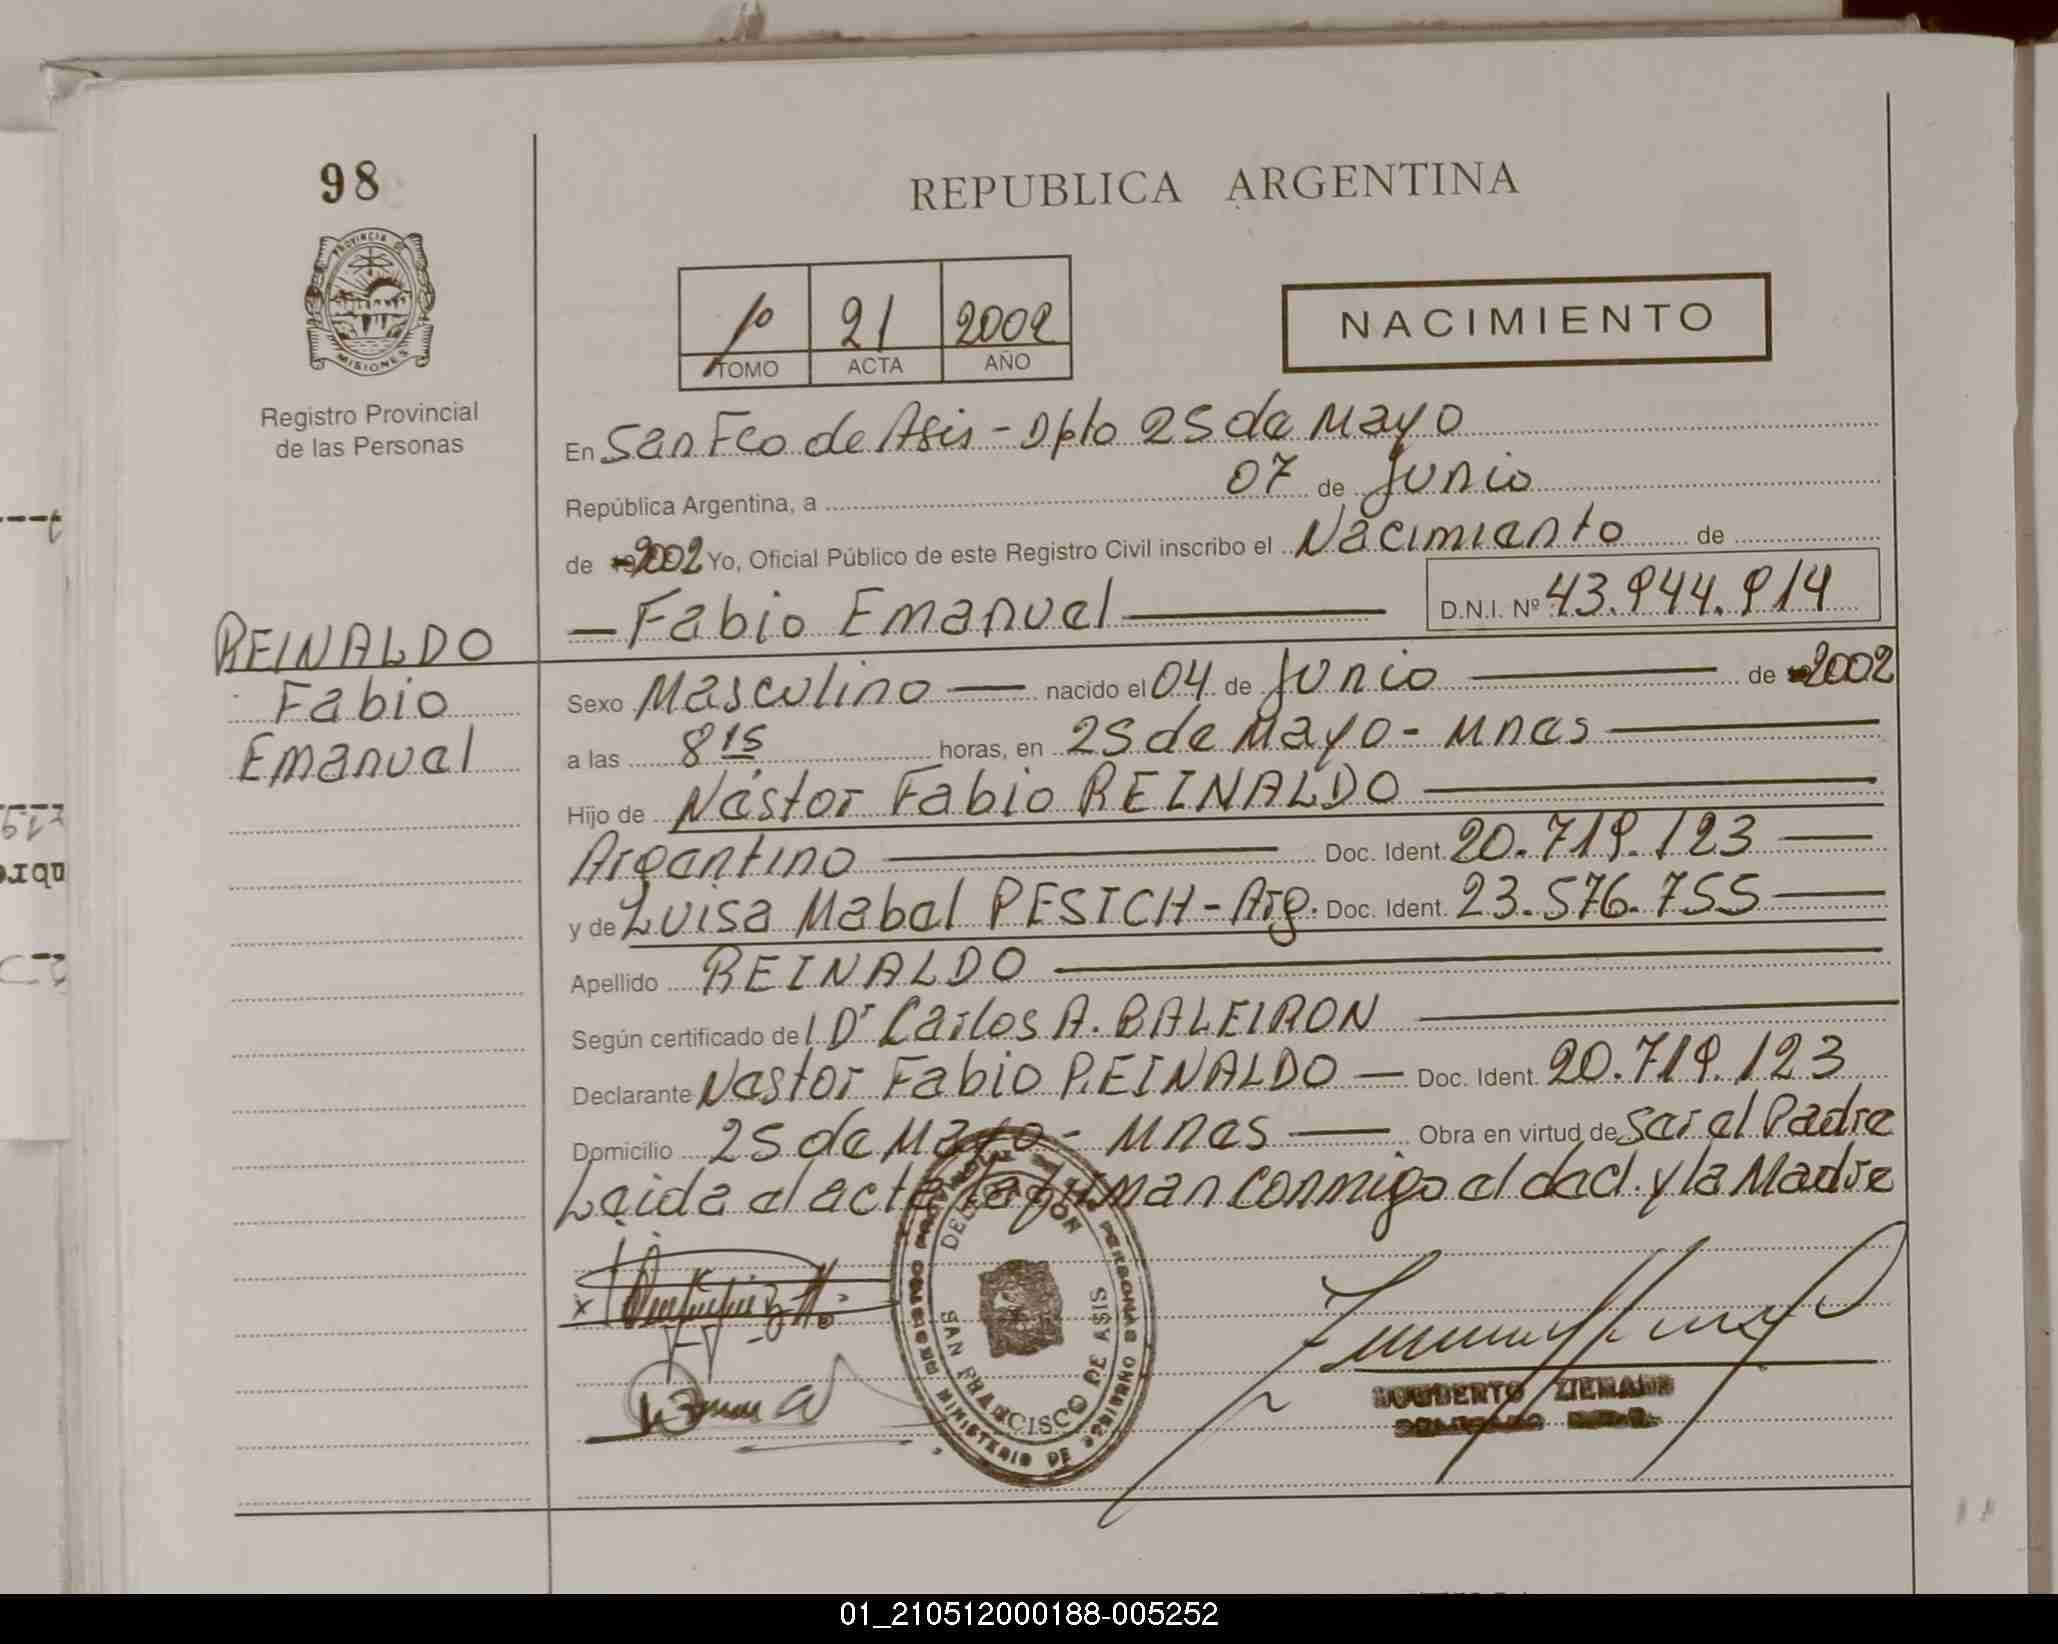 98
REPUBLICA ARGENTINA
PROVINCIA DE
MISIONES
Registro Provincial
de las Personas
1º 21 2002
TOMO ACTA AÑO
NACIMIENTO
En San Fco de Asis - Dpto 25 de Mayo
República Argentina, a 07 de Junio
de 2002 Yo, Oficial Público de este Registro Civil inscribo el Nacimiento de
— Fabio Emanuel — D.N.I. Nº 43.944.914
REINALDO
Fabio
Emanuel
Sexo Masculino — nacido el 04 de Junio — de 2002
a las 8 15 horas, en 25 de Mayo - Mnes —
Hijo de Néstor Fabio REINALDO —
Argentino — Doc. Ident. 20.719.123 —
y de Luisa Mabel PESICH - Arg. Doc. Ident. 23.576.755 —
Apellido REINALDO —
Según certificado del Dr Carlos A. BALEIRON —
Declarante Nestor Fabio REINALDO — Doc. Ident. 20.719.123
Domicilio 25 de Mayo - Mnes — Obra en virtud de ser el Padre
Leída el acta la firman conmigo el decl. y la Madre
SAN FRANCISCO DE ASIS
MINISTERIO DE GOBIERNO
ZIEMANN
01_210512000188-005252